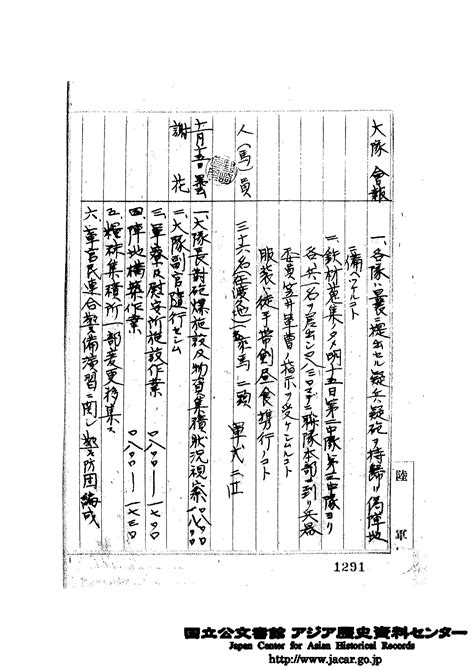 大隊會報
一、各隊ハ曩ニ提出セル疑兵疑砲ヲ持歸リ偽陣地
ニ備ヘルコト
二、鉄材蒐集ノタメ明十五日第一中隊第三中隊ヨリ
各兵一名ヲ差出シ〇八三〇マデニ聯隊本部ニ到リ兵器
委員笠井軍曹ノ指示ヲ受ケシムルコト
服装ハ徒手帯劍昼食携行ノコト
人(馬)員
三六八名 乗馬二頭
十一月十五日 曇
謝花
一、大隊長對砲爆施設及物資集積狀況視察
二、大隊副官隨行セシム
三、軍療及慰安所施設作業 〇八〇〇―一七〇〇
四、陣地構築作業 〇八〇〇―一七三〇
五、糧秣集積所一部変更移集ス
六、軍官民連合警備演習ニ関シ警防団編成
陸軍
1291
国立公文書館 アジア歴史資料センター
Japan Center for Asian Historical Records
http://www.jacar.go.jp